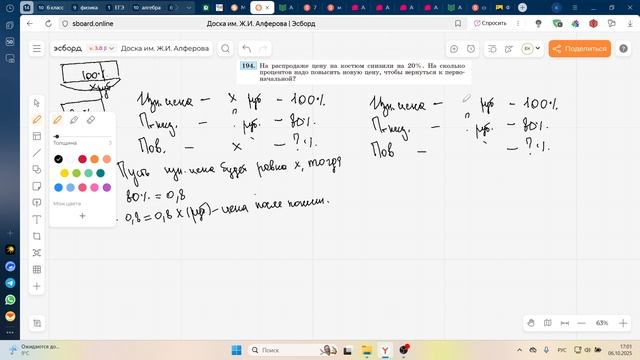 6 класс
физика
ЕГЭ
алгебра
sboard.online
Доска им. Ж.И. Алферова | Эсборд
Спросить
эсборд
v. 3.0 β
Доска им. Ж.И. Алферова
Поделиться
194. На распродаже цену на костюм снизили на 20%. На сколько
процентов надо повысить новую цену, чтобы вернуться к перво-
начальной?
100%
x руб
x руб - 100%
руб - 100%
руб. - 80%.
руб. - 80%.
Пов. - x - ? %.
Пов - - ? %.
Толщина
Мои цвета
Пусть нач. цена будет равна x, тогда
80% = 0,8
0,8 = 0,8 x (руб) - цена после пониж.
63%
Ожидаются до...
9°C
Поиск
РУС
17:01
06.10.2025